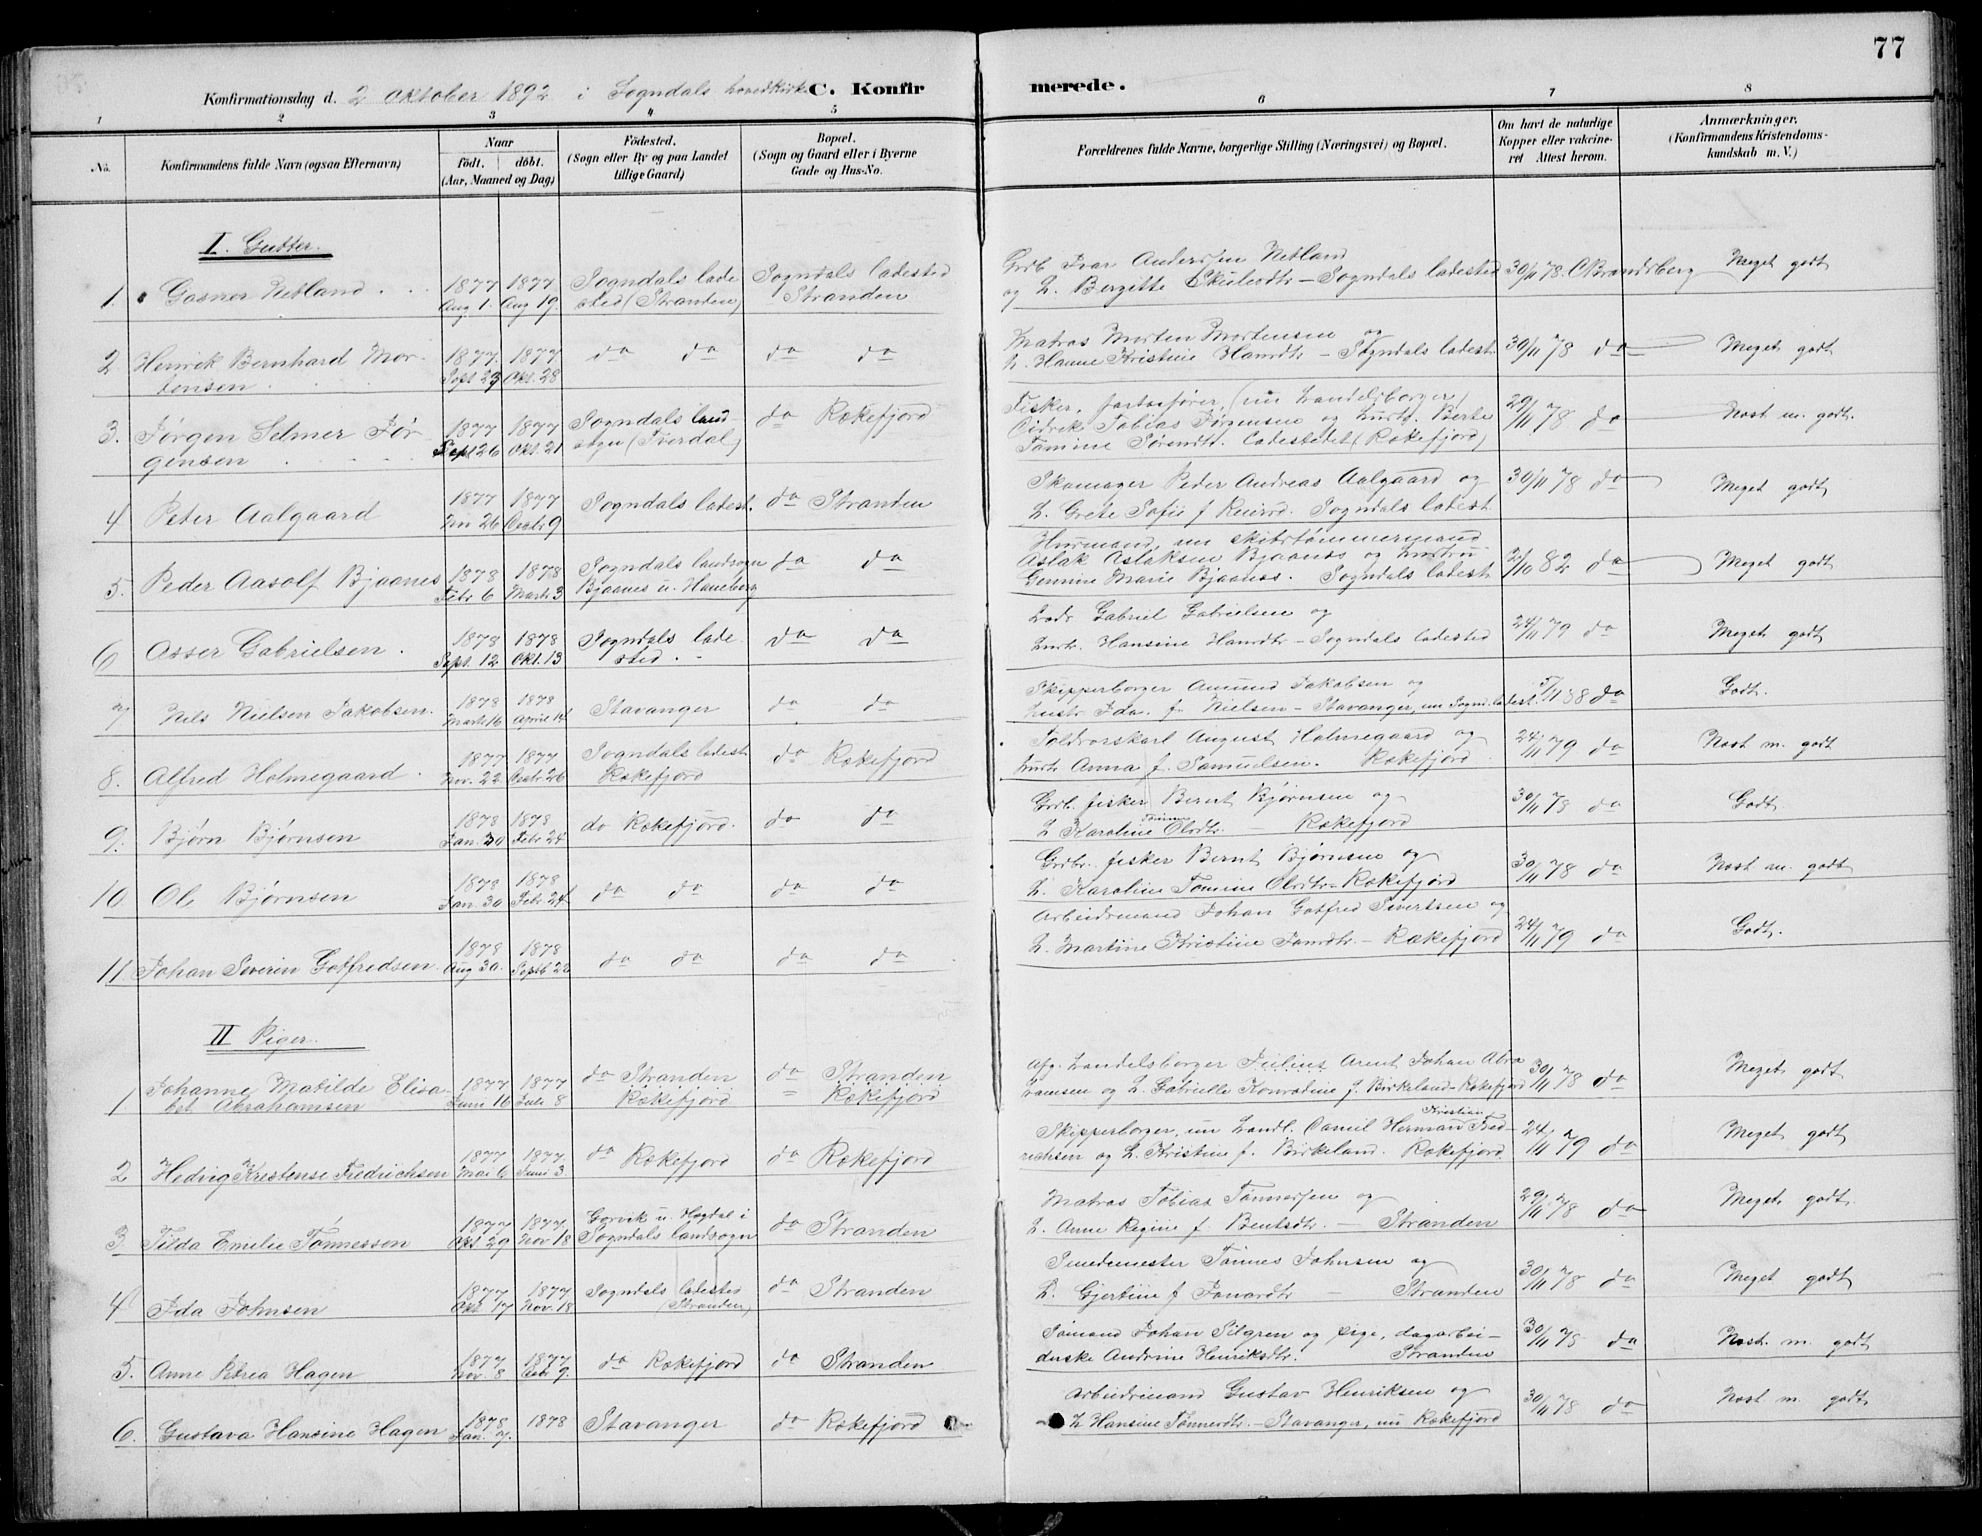 77
Konfirmationsdag d. 2 Oktober 1892 i Sogndals hovedkirke C. Konfirmerede.
1 2 3 4 5 6 7 8
No.
Konfirmandens fulde Navn (ogsaa Efternavn)
Naar
födt. döbt.
(Aar, Maaned og Dag)
Födested.
(Sogn eller By og paa Landet
tillige Gaard)
Bopæl.
(Sogn og Gaard eller i Byerne
Gade og Hus-No.
Forældrenes fulde Navne, borgerlige Stilling (Næringsvei) og Bopæl.
Om havt de naturlige
Kopper eller vakcine-
ret Attest herom.
Anmærkninger.
(Konfirmandens Kristendoms-
kundskab m. V.)
I. Gutter.
1. Gasner Netland 1877 Aug 1. 1877 Aug 19. Sogndals lade-
sted (Stranden) Sogndals ladested
Stranden
Grdb. Ivar Andersen Netland
og H. Bergitte Skulesdtr – Sogndals ladested 30/11 78. C Brandsberg Meget godt
2 Henrik Bernhard Mor-
tensen 1877. Sept 23 1877. Okt. 28 do do do do
Matros Morten Mortensen og
H. Hanne Kristine Hansdtr – Sogndals ladest. 30/11 78 do Meget godt
3. Jørgen Selmer Jør-
gensen 1877 Sept 26 1877 Okt. 21 Sogndals land-
sogn (Tverdal) do Rekefjord
Fisker, fartøifører, (nu Handelsborger)
Didrik Tobias Jørgensen og Hustr. Berte
Tamine Sørensdt. Ladestedet (Rekefjord) 29/11 78 do Nost m. godt.
4 Peter Aalgaard 1877 Nov 26 1877 Decbr 9 Sogndals ladest. do Stranden
Skomager Peder Andreas Aalgaard og
H. Grete Sofie f Reiersd. Sogndals ladest. 30/11 78 do Meget godt
5. Peder Aasolf Bjaanes 1878 Febr 6 1878 Marts 3 Sogndals landsogn
Bjaanes u. Haneberg do do
Husmand, nu skibstømmermand
Aslak Aslaksen Bjaanes og hustru
Gemine Marie Bjaanes. Sogndals ladest. /10 82 do Meget godt
6 Asser Gabrielsen. 1878 Sept. 12 1878 Okt. 13 Sogndals lade-
sted. do do
Lods Gabriel Gabrielsen og
Hustr. Hansine Hansdtr – Sogndals ladested 24/11 79 do Meget godt
7 Nils Nielsen Jakobsen. 1878 Marts 16 1878 April 14 Stavanger do do
Skipperborger Amund Jakobsen og
Hustr. Ida f. Nielsen – Stavanger, nu Sognd. ladest. 5/11 88 do Godt.
8. Alfred Holmegaard 1877 Nov. 22 1877 Decbr 26 Sogndals ladest
Rekefjord do Rekefjord
Toldrorskarl August Holmegaard og
Hustr Anna f. Samuelsen. Rekefjord 24/11 79 do Nost m. godt
9. Bjørn Bjørnsen 1878 Jan. 30 1878 Febr 24 do Rekefjord. do do
Grdb. fisker Bernt Bjørnsen og
H Karoline Tomine Olsdtr. – Rekefjord 30/11 78 do Godt
10 Ole Bjørnsen 1878 Jan. 30 1878 Febr 24 do do do do
Grdbr. fisker Bernt Bjørnsen og
H. Karoline Tomine Olsdtr – Rekefjord 30/11 78 do Nost m. godt
11. Johan Severin Gotfredsen. 1878 Aug 30. 1878 Septb 22 do do do do
Arbeidsmand Johan Gotfred Sivertsen og
H. Martine Kristine Jansdtr. – Rekefjord 24/11 79 do Godt.
II Piger.
1 Johanne Matilde Elisa-
bet Abrahamsen 1877 Juni 16 1877 Juli 8 do Stranden
Rekefjord do Stranden
= Rekefjord
Afg. Handelsborger Julius Arnt Johan Abra-
hamsen og H. Gabrielle Konradine f. Birkeland – Rekefjord 30/11 78 do Meget godt
2 Hedvig Kristense Fredrichsen 1877 Mai 6 1877. Juni 3 do Rekefjord do Rekefjord
Skipperborger, nu Handl. Daniel Herman Kristian Fred-
richsen og H. Kristine f. Birkeland. Rekefjord. 24/11 79 do Meget godt
3 Tilda Emelie Tønnessen 1877 Okt 29 1877. Nov 18 Gorvik u. Høgdal i
Sogndals landsogn do Stranden
Matros Tobias Tønnesen og
H. Anne Regine f. Bentsdtr. – Stranden 29/11 78 do Meget godt.
4 Ida Johnsen 1877 Okt 17 1877 Nov. 18 Sogndals ladested
(Stranden) do Stranden
Smedemester Tønnes Johnsen og
H. Gjertine f Jonasdtr – Stranden 30/11 78 do Meget godt
5. Anne Petrea Hagen 1877 Nov. 8 1877 Decbr 9. do Rekefjord do Stranden
Sømand Johan Silgren og pige, dagarbei-
derske Andrine Henriksdtr. Stranden 30/11 78 do Nost. m. godt
6. Gustava Hansine Hagen 1878 Jan. 7. 1878 Stavanger do Rekefjord
Arbeidsmand Gustav Henriksen og
H Hansine Tønnesdtr. – Stavanger, nu Rekefjord 30/11 78 do Nost m. godt